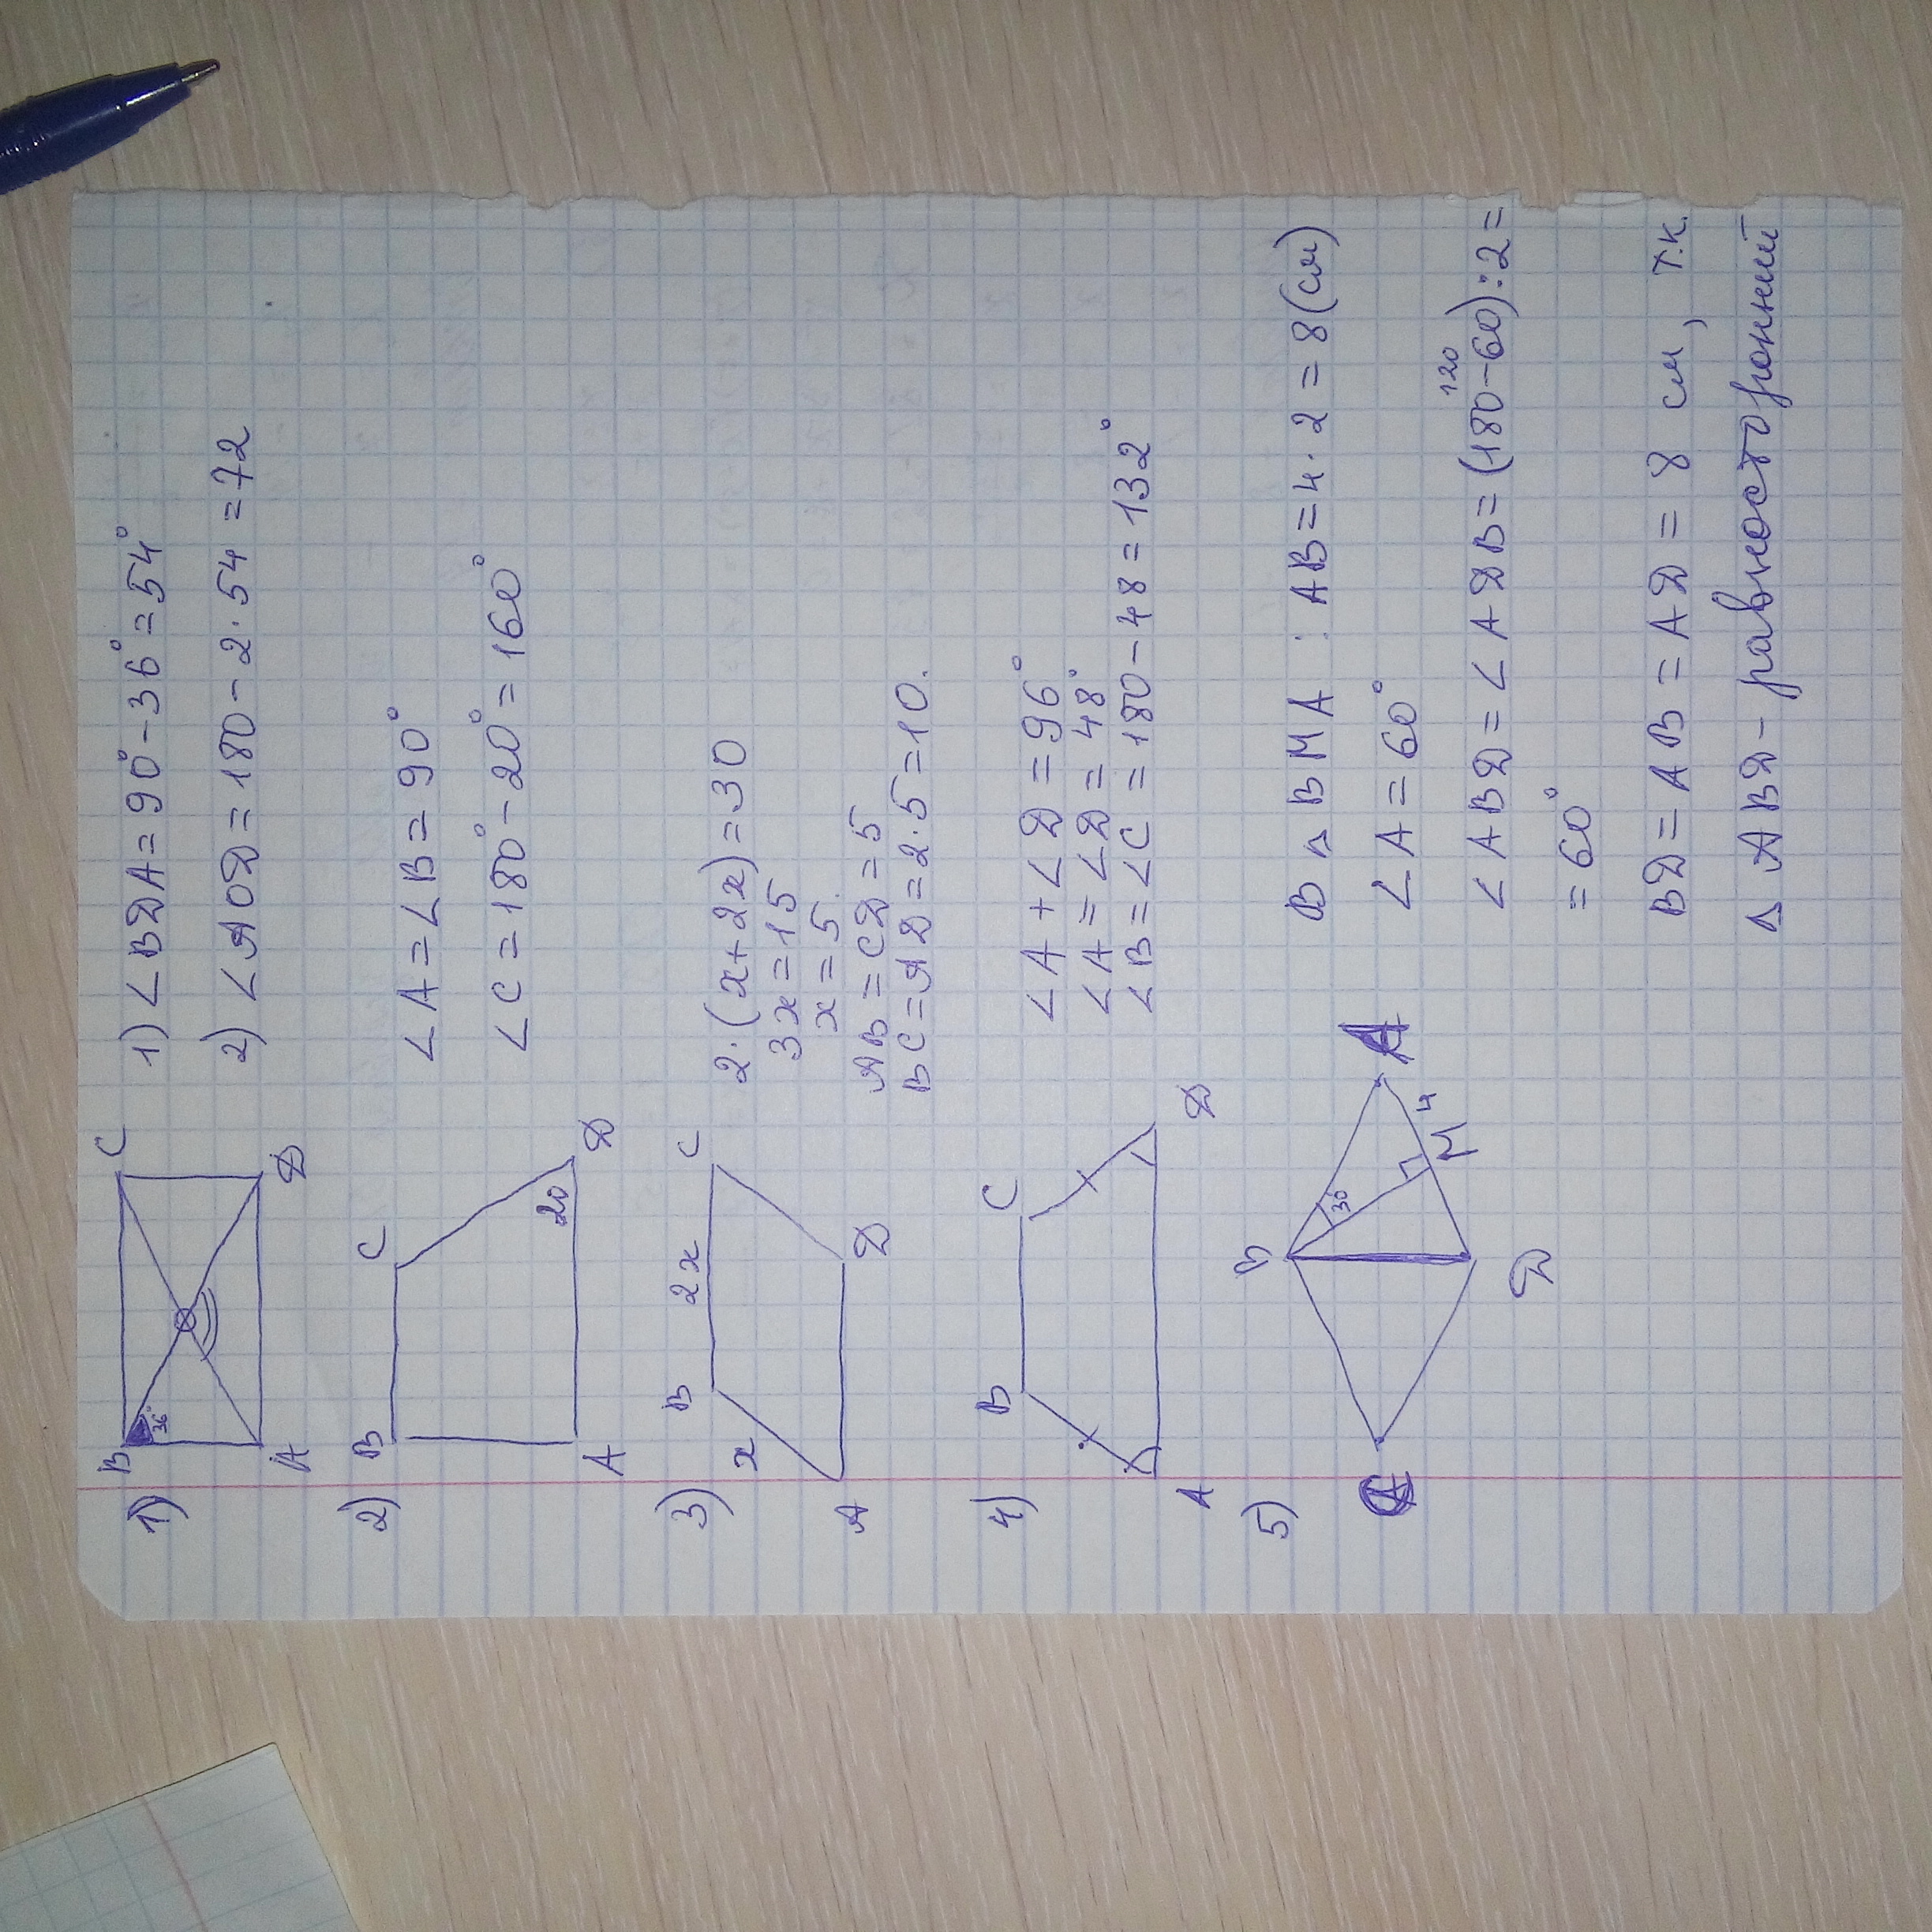 1)
B
C
A
D
36°
O
1) ∠BDA = 90° - 36° = 54°
2) ∠AOD = 180 - 2 · 54 = 72
2)
B
C
A
D
20
∠A = ∠B = 90°
∠C = 180° - 20° = 160°
3)
B
2x
C
x
A
D
2 · (x + 2x) = 30
3x = 15
x = 5.
AB = CD = 5
BC = AD = 2 · 5 = 10.
4)
B
C
A
D
∠A + ∠D = 96°
∠A = ∠D = 48°
∠B = ∠C = 180 - 48 = 132°
5)
B
30
A
4
M
C
D
В △ BMA : AB = 4 · 2 = 8 (см)
∠A = 60°
120
∠ABD = ∠ADB = (180 - 60) : 2 =
= 60°
BD = AB = AD = 8 см, т.к.
△ ABD - равносторонний